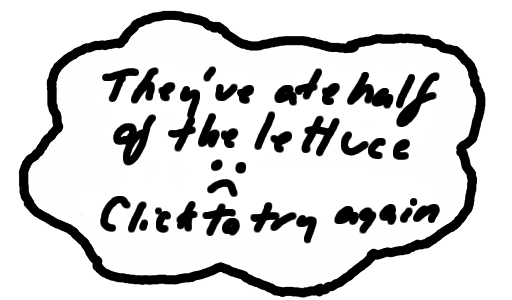 They've ate half
of the lettuce
:(
Click to try again